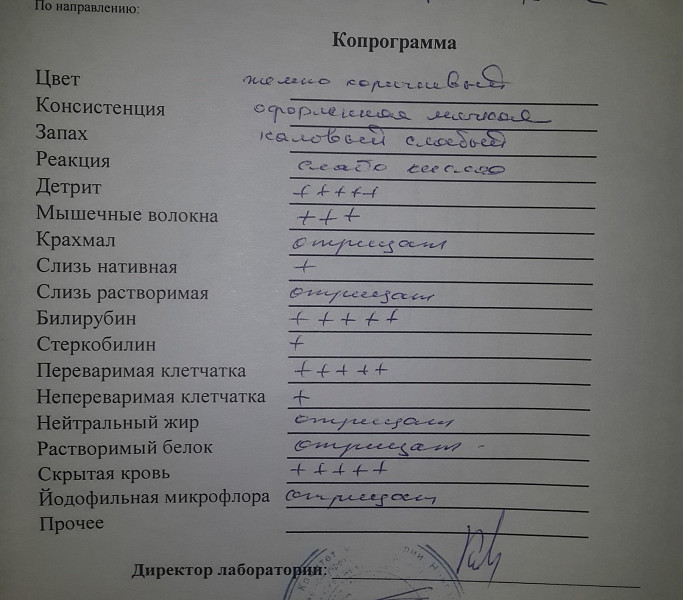 По направлению:
Копрограмма
Цвет темно коричневый
Консистенция оформленная мягкая
Запах каловый слабый
Реакция слабо кислая
Детрит +++++
Мышечные волокна +++
Крахмал отрицат
Слизь нативная +
Слизь растворимая отрицат
Билирубин +++++
Стеркобилин +
Переваримая клетчатка +++++
Непереваримая клетчатка +
Нейтральный жир отрицат
Растворимый белок отрицат -
Скрытая кровь +++++
Йодофильная микрофлора отрицат
Прочее
Директор лаборатории: